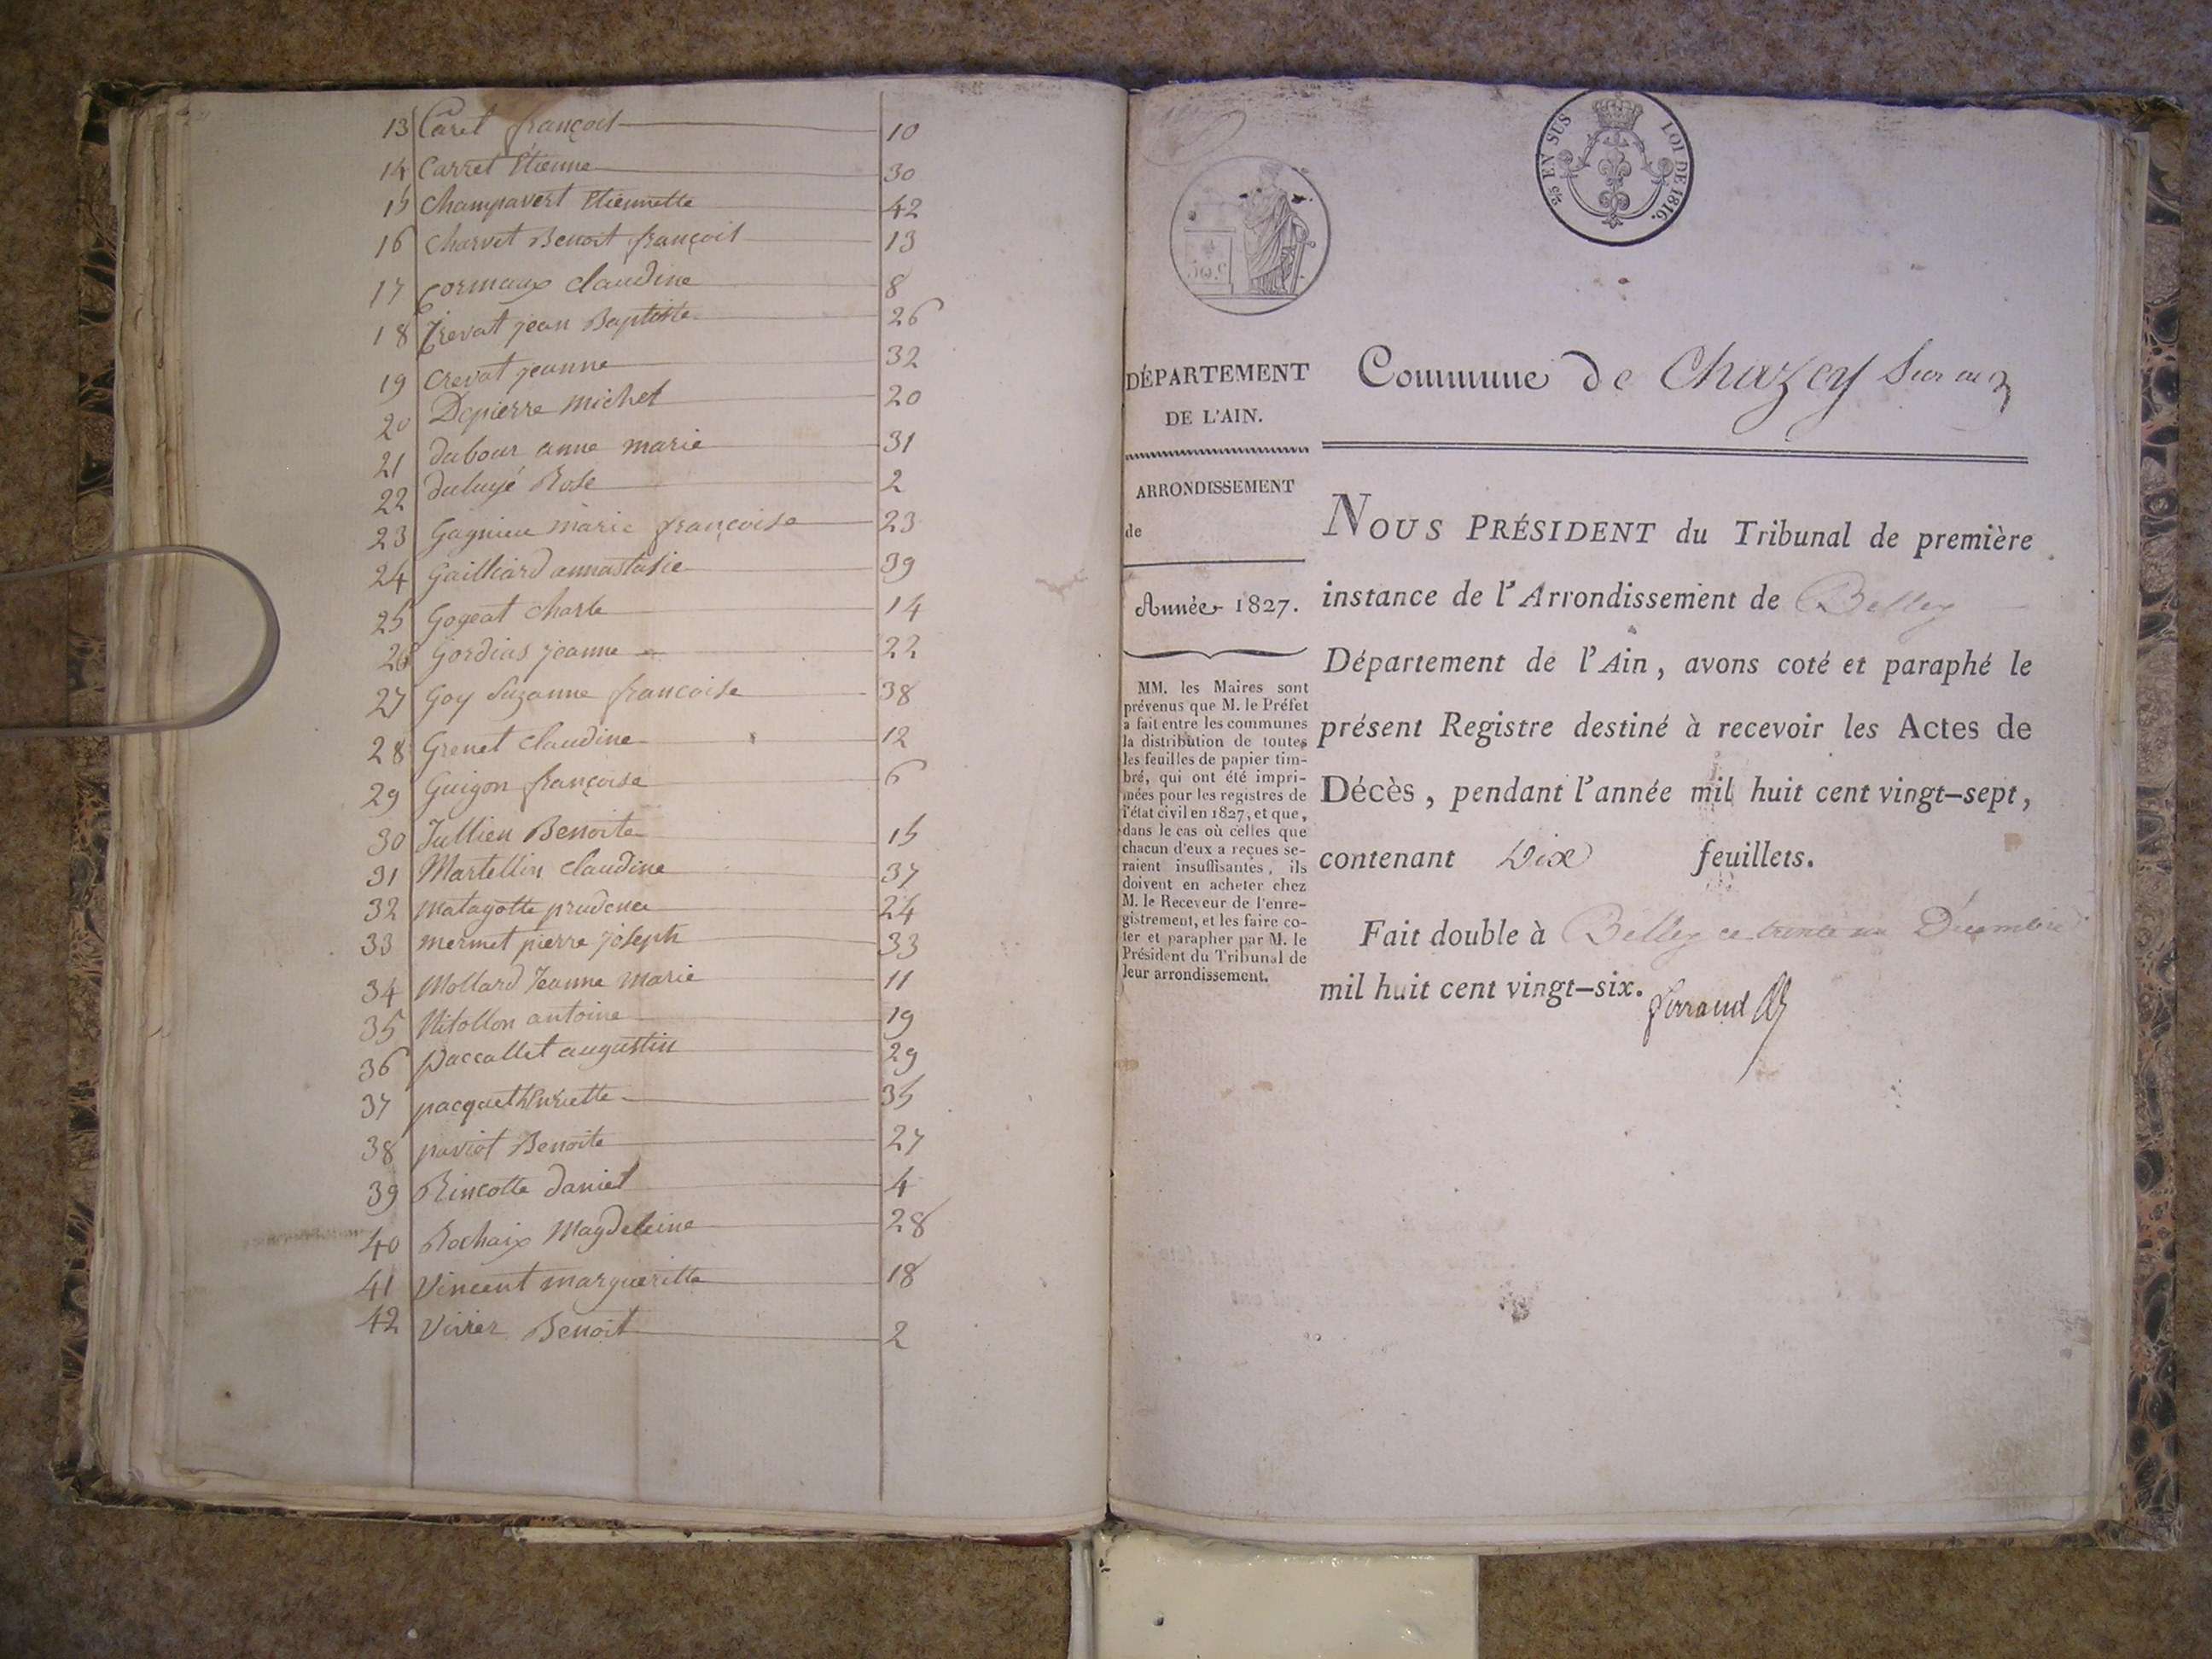 13 Caret françois 10
14 Carret Etienne 30
15 Champavert Etiennette 42
16 charvet Benoit françois 13
17 Cormaux claudine 8
18 Crevat jean Baptiste 26
19 Crevat jeanne 32
20 Depierre michel 20
21 dubour anne marie 31
22 Rose 2
23 Gagnieu marie françoise 23
24 Gailliard annastasie 39
25 Gogeat Charle 14
26 Gordias jeanne 22
27 Goy Suzanne francoise 38
28 Grenet claudine 12
29 Guigon françoise 6
30 Jullien Benoite 15
31 Martellin claudine 37
32 matagotte prudence 24
33 mermet pierre joseph 33
34 Mollard Jeanne Marie 11
35 Nitollon antoine 19
36 Paccallet augustin 29
37 pacquet henriette 35
38 paviot Benoite 27
39 Rincotte daniel 4
40 Rochaix Magdeleine 28
41 Vincent margueritte 18
42 Benoit 2
2/5 EN SUS LOI DE 1816.
DÉPARTEMENT
DE L'AIN.
Commune de Chazey Sur ain
ARRONDISSEMENT
de
Année 1827.
MM. les Maires sont
prévenus que M. le Préfet
a fait entre les communes
la distribution de toutes
les feuilles de papier tim-
bré, qui ont été impri-
mées pour les registres de
l'état civil en 1827, et que,
dans le cas où celles que
chacun d'eux a reçues se-
raient insuffisantes, ils
doivent en acheter chez
M. le Receveur de l'enre-
gistrement, et les faire co-
ter et parapher par M. le
Président du Tribunal de
leur arrondissement.
NOUS PRÉSIDENT du Tribunal de première
instance de l'Arrondissement de Belley
Département de l'Ain, avons coté et paraphé le
présent Registre destiné à recevoir les Actes de
Décès, pendant l'année mil huit cent vingt-sept,
contenant Dix feuillets.
Fait double à Belley ce trente un Décembre
mil huit cent vingt-six.